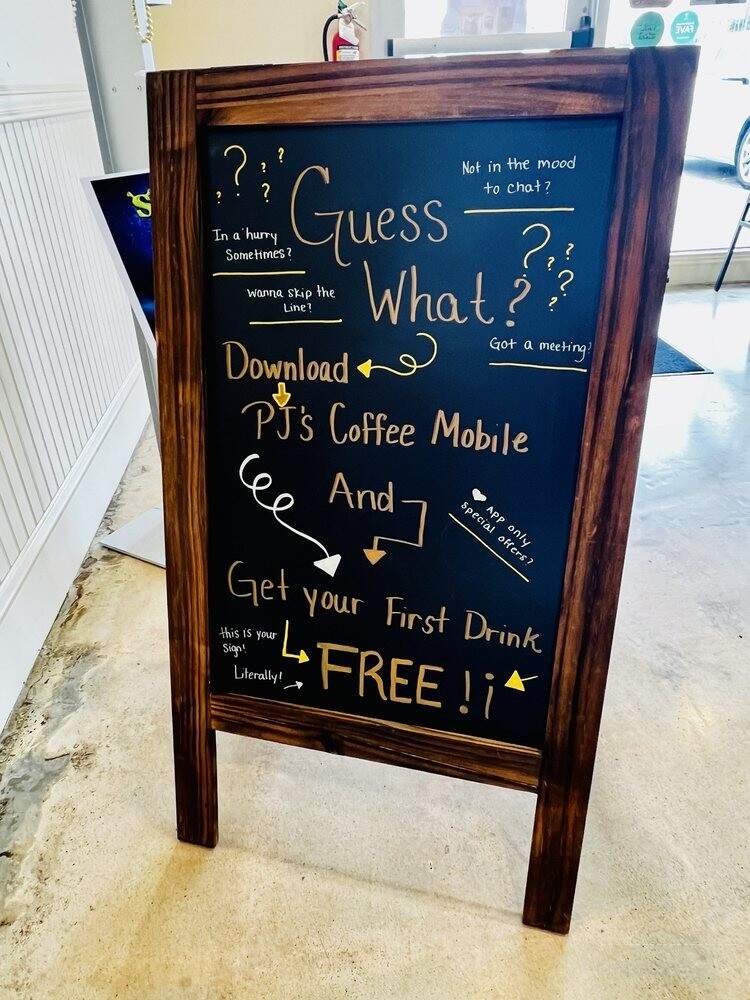 ? ? ? ? ?
Not in the mood
to chat?
Guess
In a hurry
Sometimes?
What?
? ? ? ? ?
Wanna skip the
Line?
Got a meeting?
Download
PJ's Coffee Mobile
And
♥ App only
special offers?
Get your First Drink
this is your
Sign!
FREE!¡
Literally!
FAVE